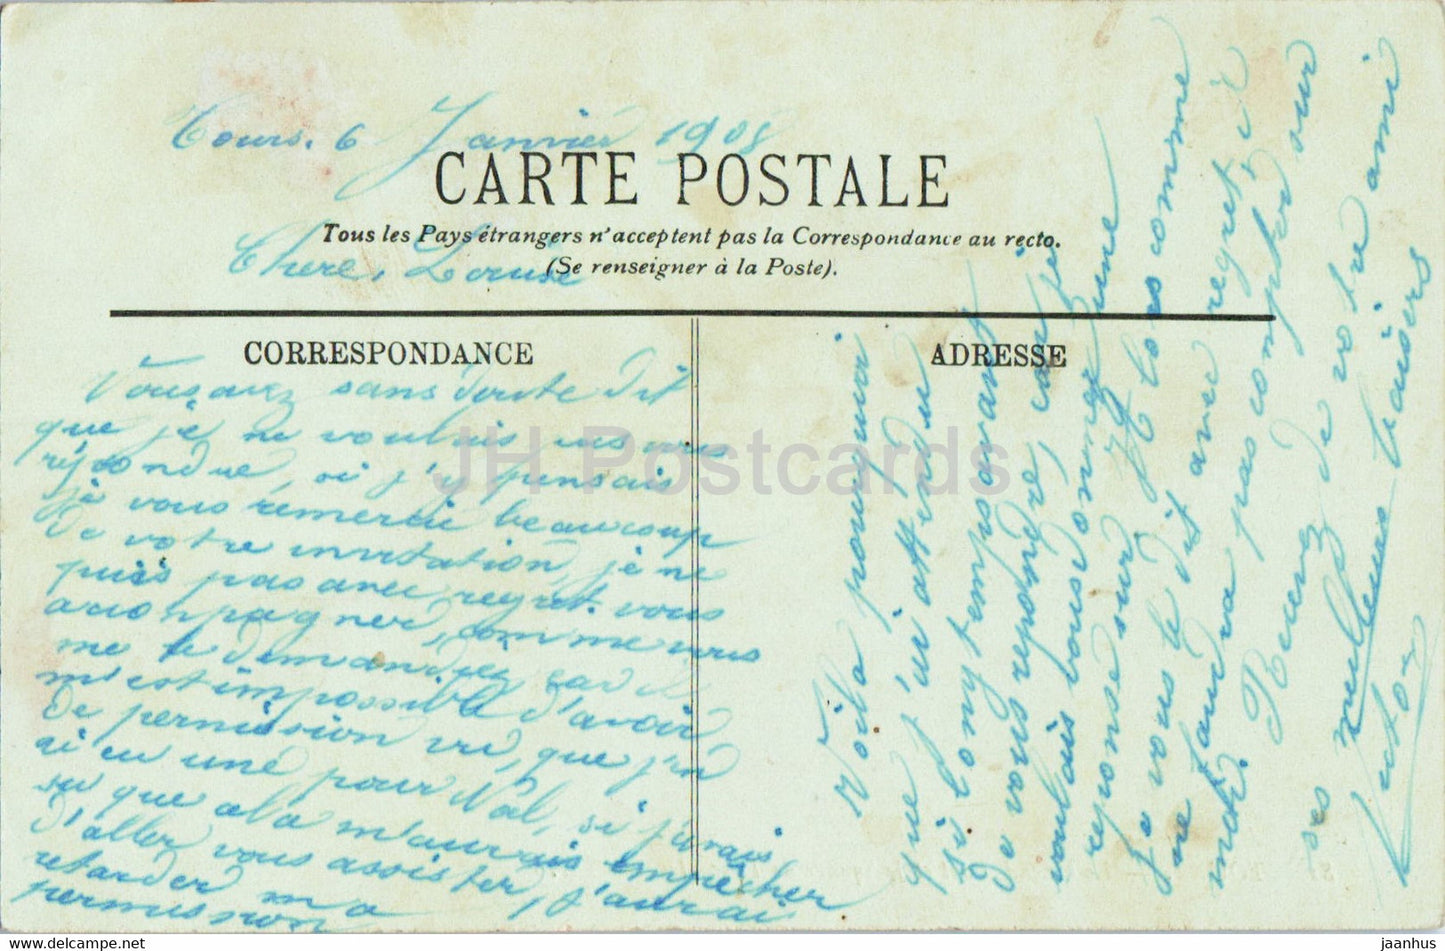 Tours. 6 Janvier 1908
CARTE POSTALE
Tous les Pays étrangers n'acceptent pas la Correspondance au recto.
(Se renseigner à la Poste).
Chere, Louise
CORRESPONDANCE
ADRESSE
Vous avez sans doute dit
que je ne voulais vous
repondre, si j'y pensais
je vous remercie beaucoup
de votre invitation, je ne
puis pas avec regret vous
acconpagner, comme vous
me le demandiez car il
m'est impossible d'avoir
de permission vu, que j'en
ai eu une pour Noël, si j'avais
su que cela m'aurais empêcher
d'aller vous assister, j'aurai
retarder ma
permission
Voila pourquoi
que j'ai attendu
si lomgtemps avant
de vous repondre, car je
voulais vous donner une
reponse sur. Alors comme
je vous le dit avec regret il
ne faudra pas compter sur
moi.
Recevez de votre ami
ses meilleurs baisers
Victor
JH Postcards
jaanhus
www.delcampe.net